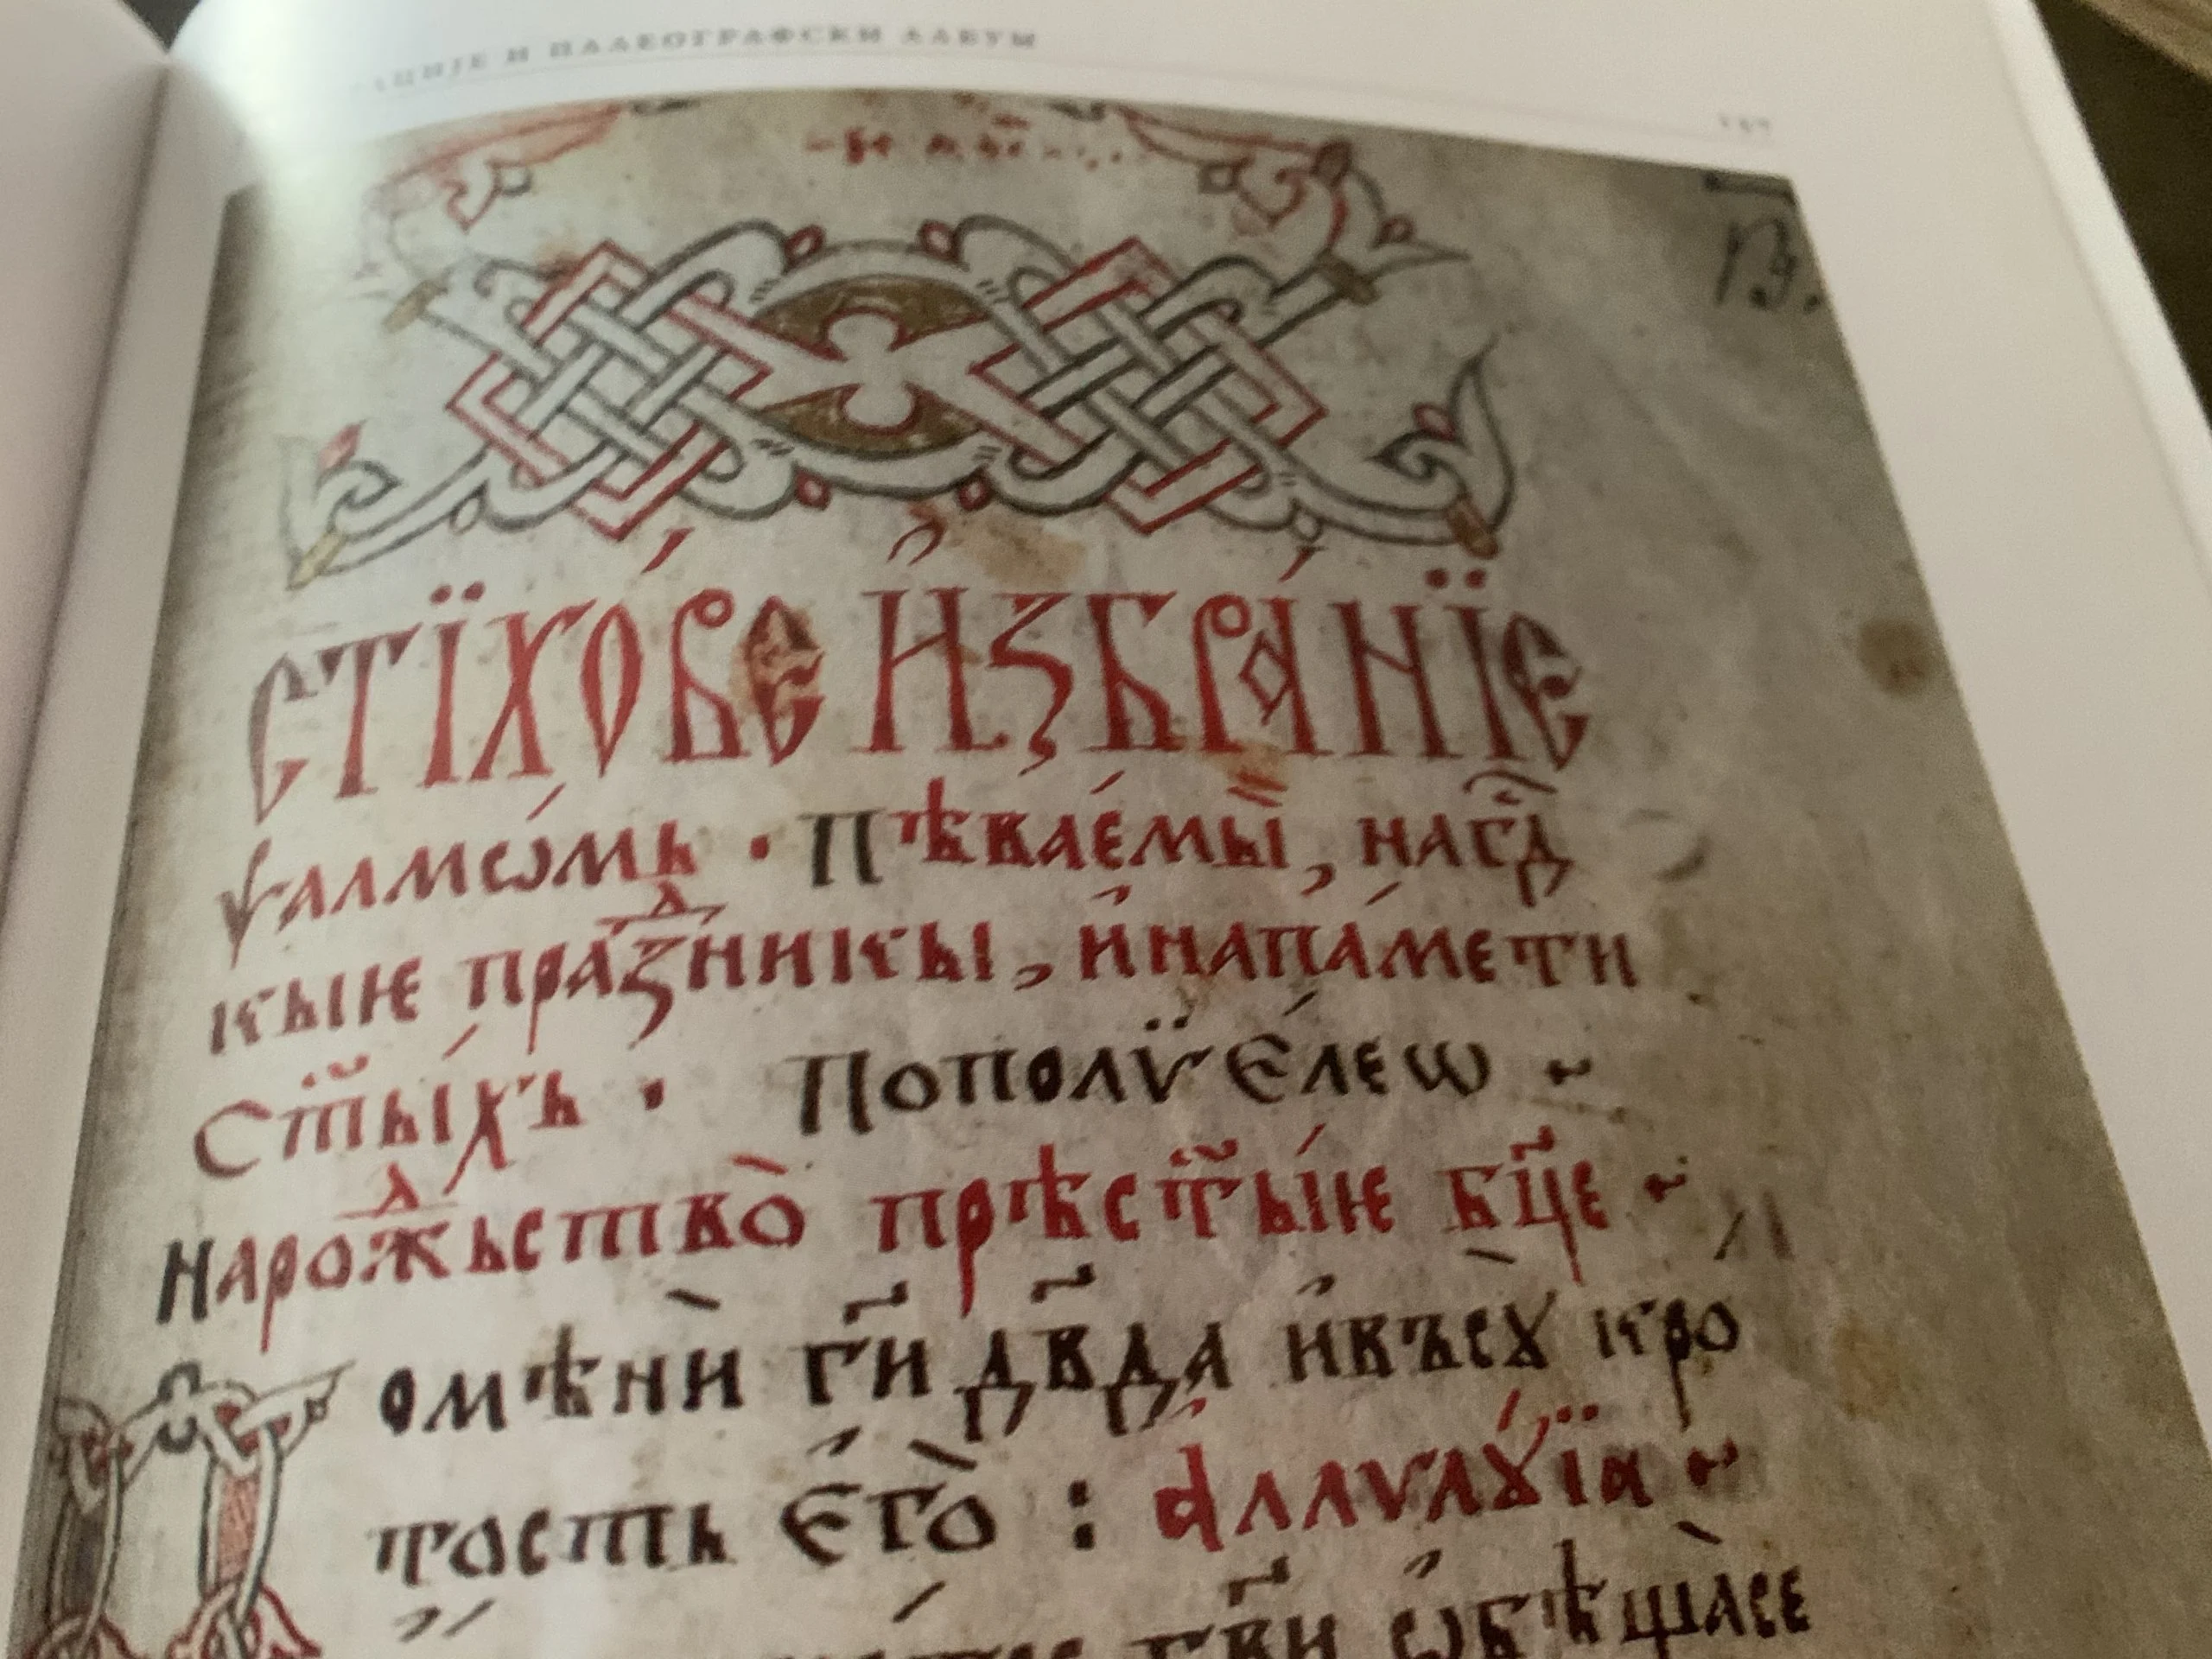 ЦИЈЕ И ПАЛЕОГРАФСКИ АЛБУМ
СТЇХО́ВЕ И҆ЗБРА́НЇЕ
ѱалмѡ́мь · Пѣвае́мыѝ, на гд҇
кыѥ пра́зⷣникы, и҆ на па́мети
ст҃ы́хь · По полѵ̈є́леѡ ~
На рожⷣьство̀ прѣст҃ы́ѥ бц҃е ~
Помѣнѝ г҃и дв҃да и҆ въсꙋ̀ кро
тость є҆го̀ : а҆ллѵлꙋ́їа ~
гв҃и ѡ҆бѣща̀се